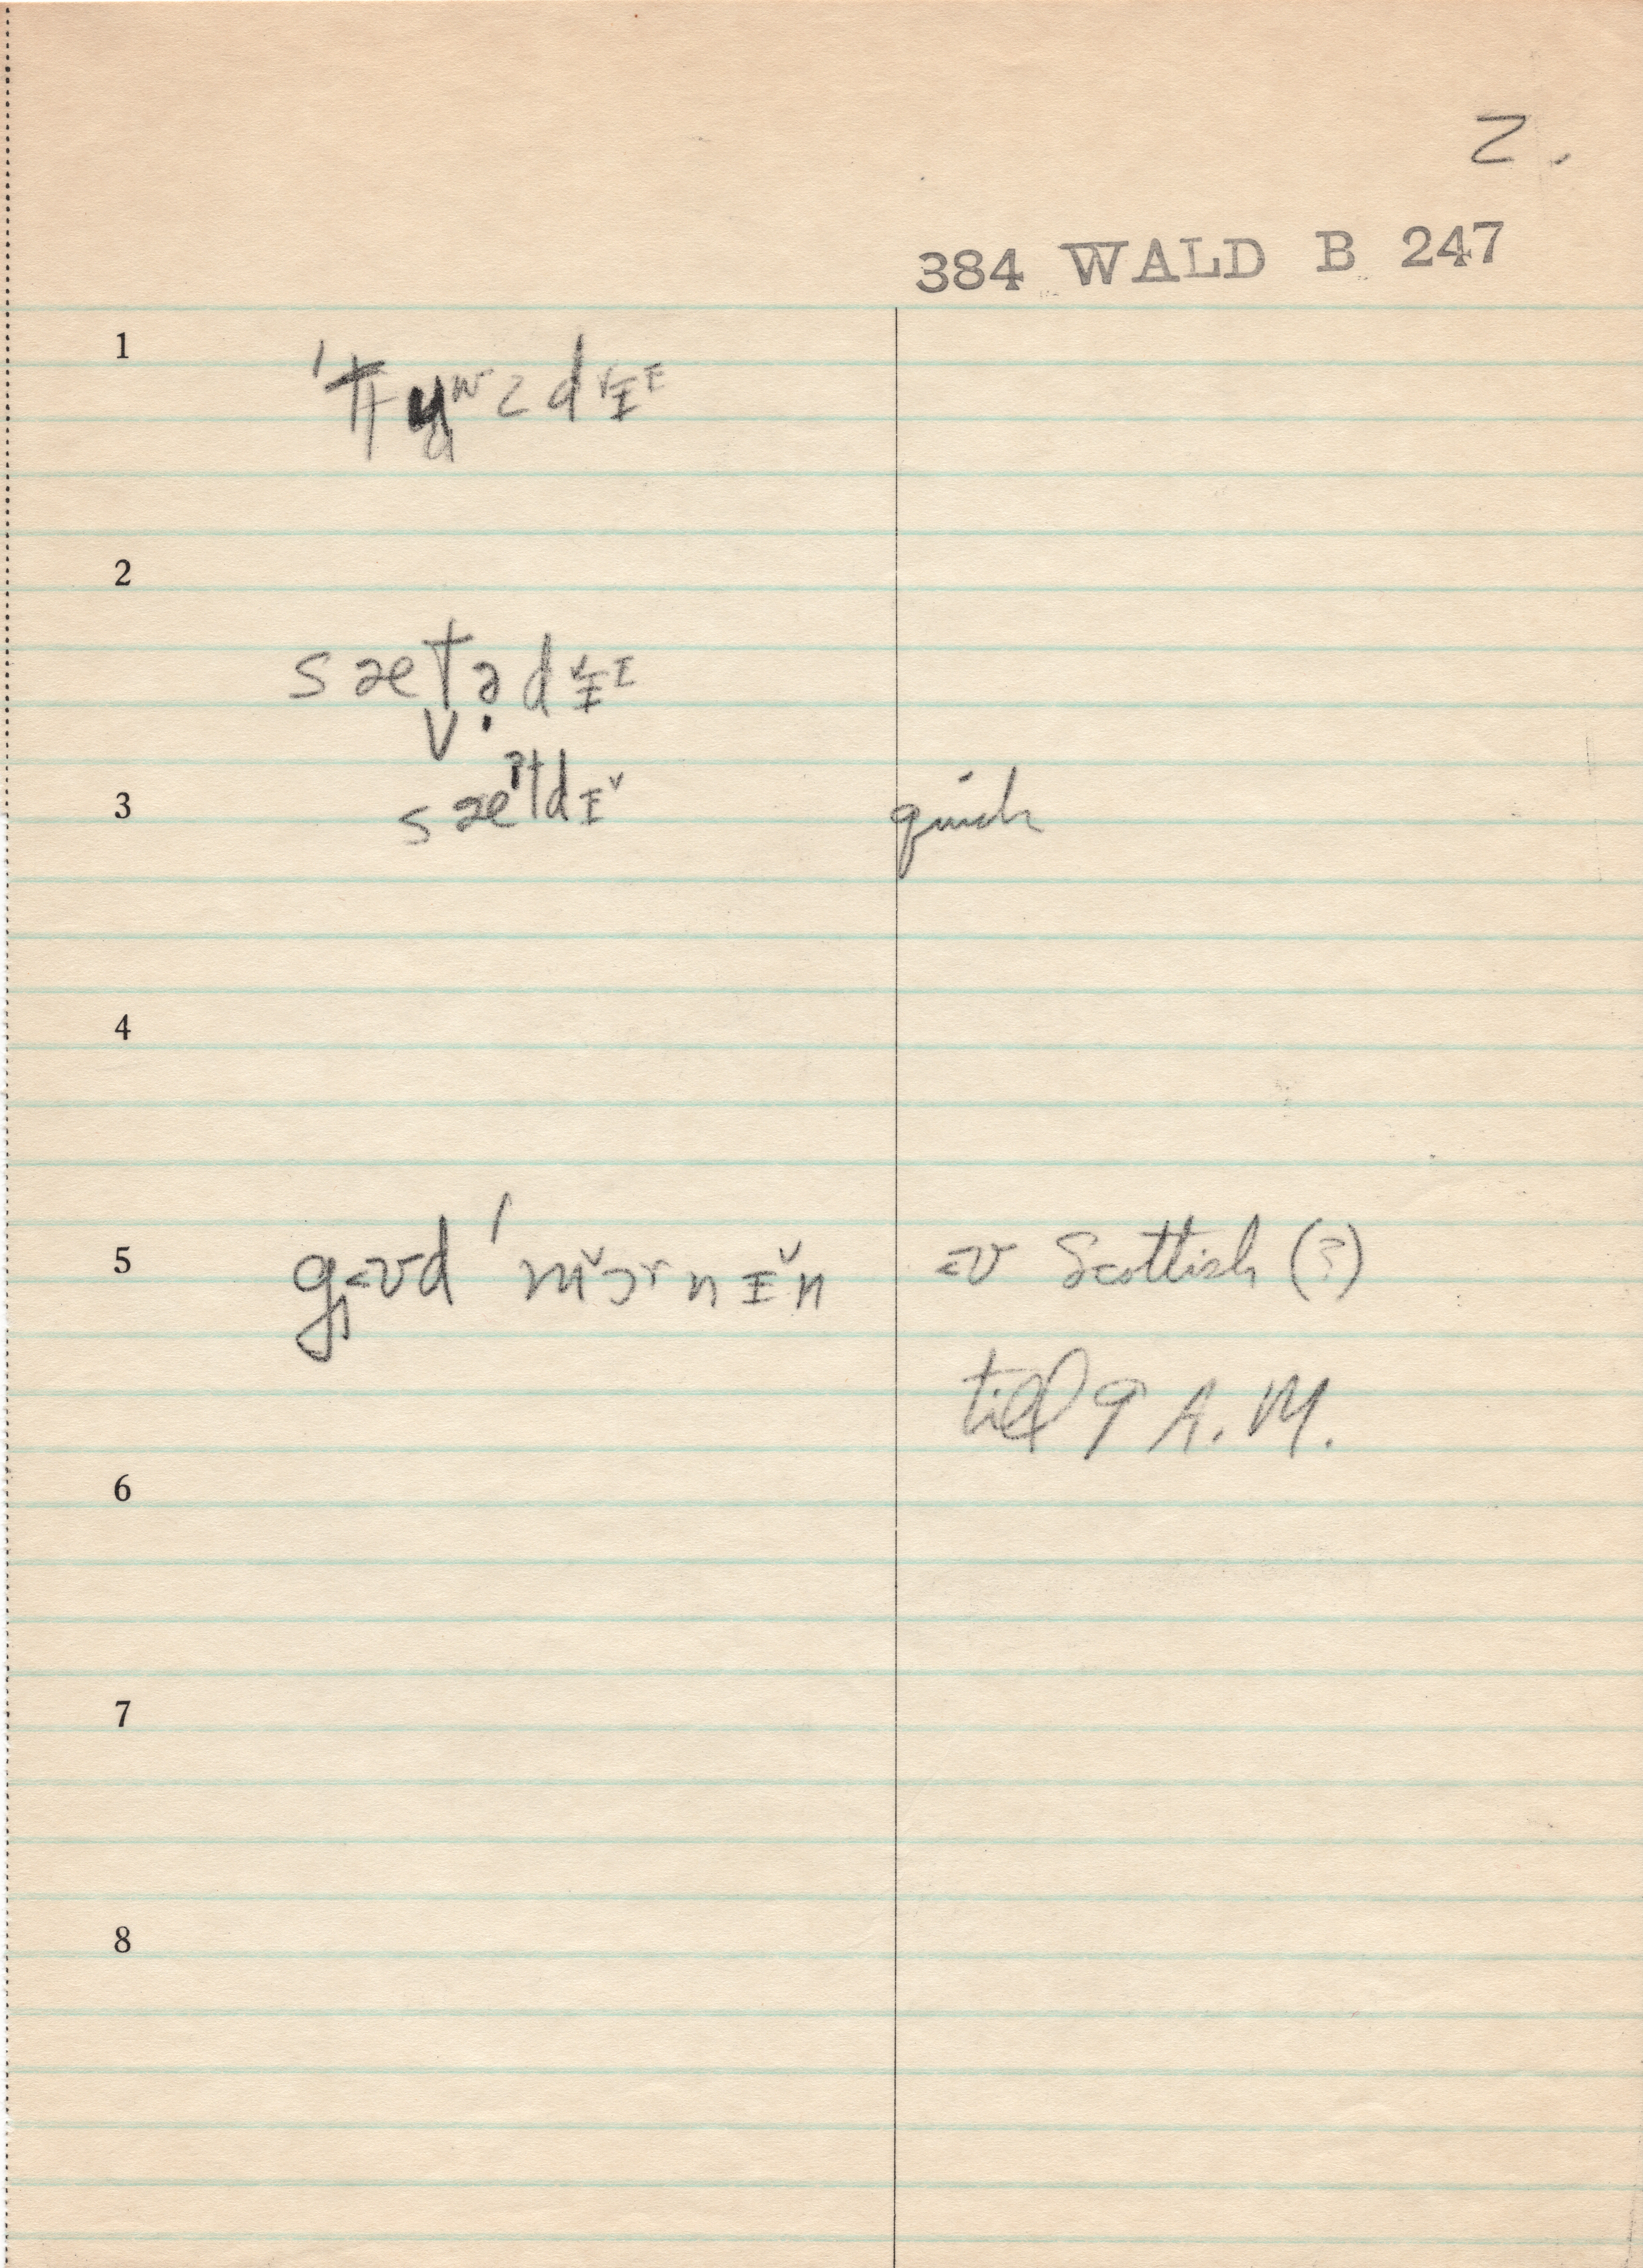 2.
384 WALD B 247
1
2
sætədɪ
3 sæˀtdɪ̆ quick
4
5 gʊd ˈmɔrnɪ̆n Scottish (?)
till 9 A.M.
6
7
8